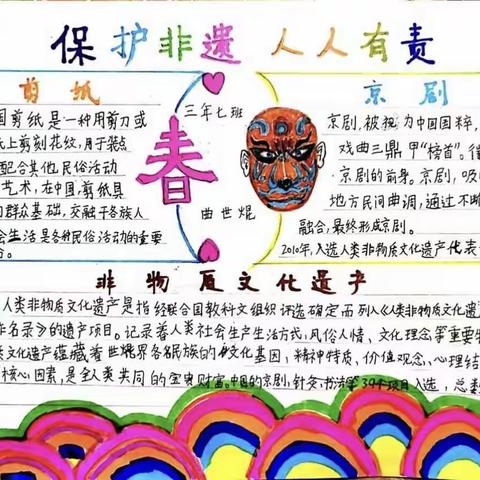 保护非遗 人人有责
剪纸
国剪纸是一种用剪刀或
纸上剪刻花纹，用于装点
配合其他民俗活动
艺术，在中国，剪纸具
的群众基础，交融于各族人
会生活，是各种民俗活动的重要
春
三年七班
曲世焜
京剧
京剧，被视为中国国粹，
戏曲三鼎甲“榜首”。徽
京剧的前身。京剧，吸
地方民间曲调，通过不断
融合，最终形成京剧。
2010年，入选人类非物质文化遗产代表
非物质文化遗产
人类非物质文化遗产是指经联合国教科文组织评选确定而列入《人类非物质文化遗产
作名录》的遗产项目。记录着人类社会生产生活方式，风俗人情、文化理念等重要特
文化遗产蕴藏着世界各民族的文化基因，精神特质、价值观念、心理结
核心因素，是全人类共同的宝贵财富。中国的京剧，针灸，书法等39个项目入选，总数